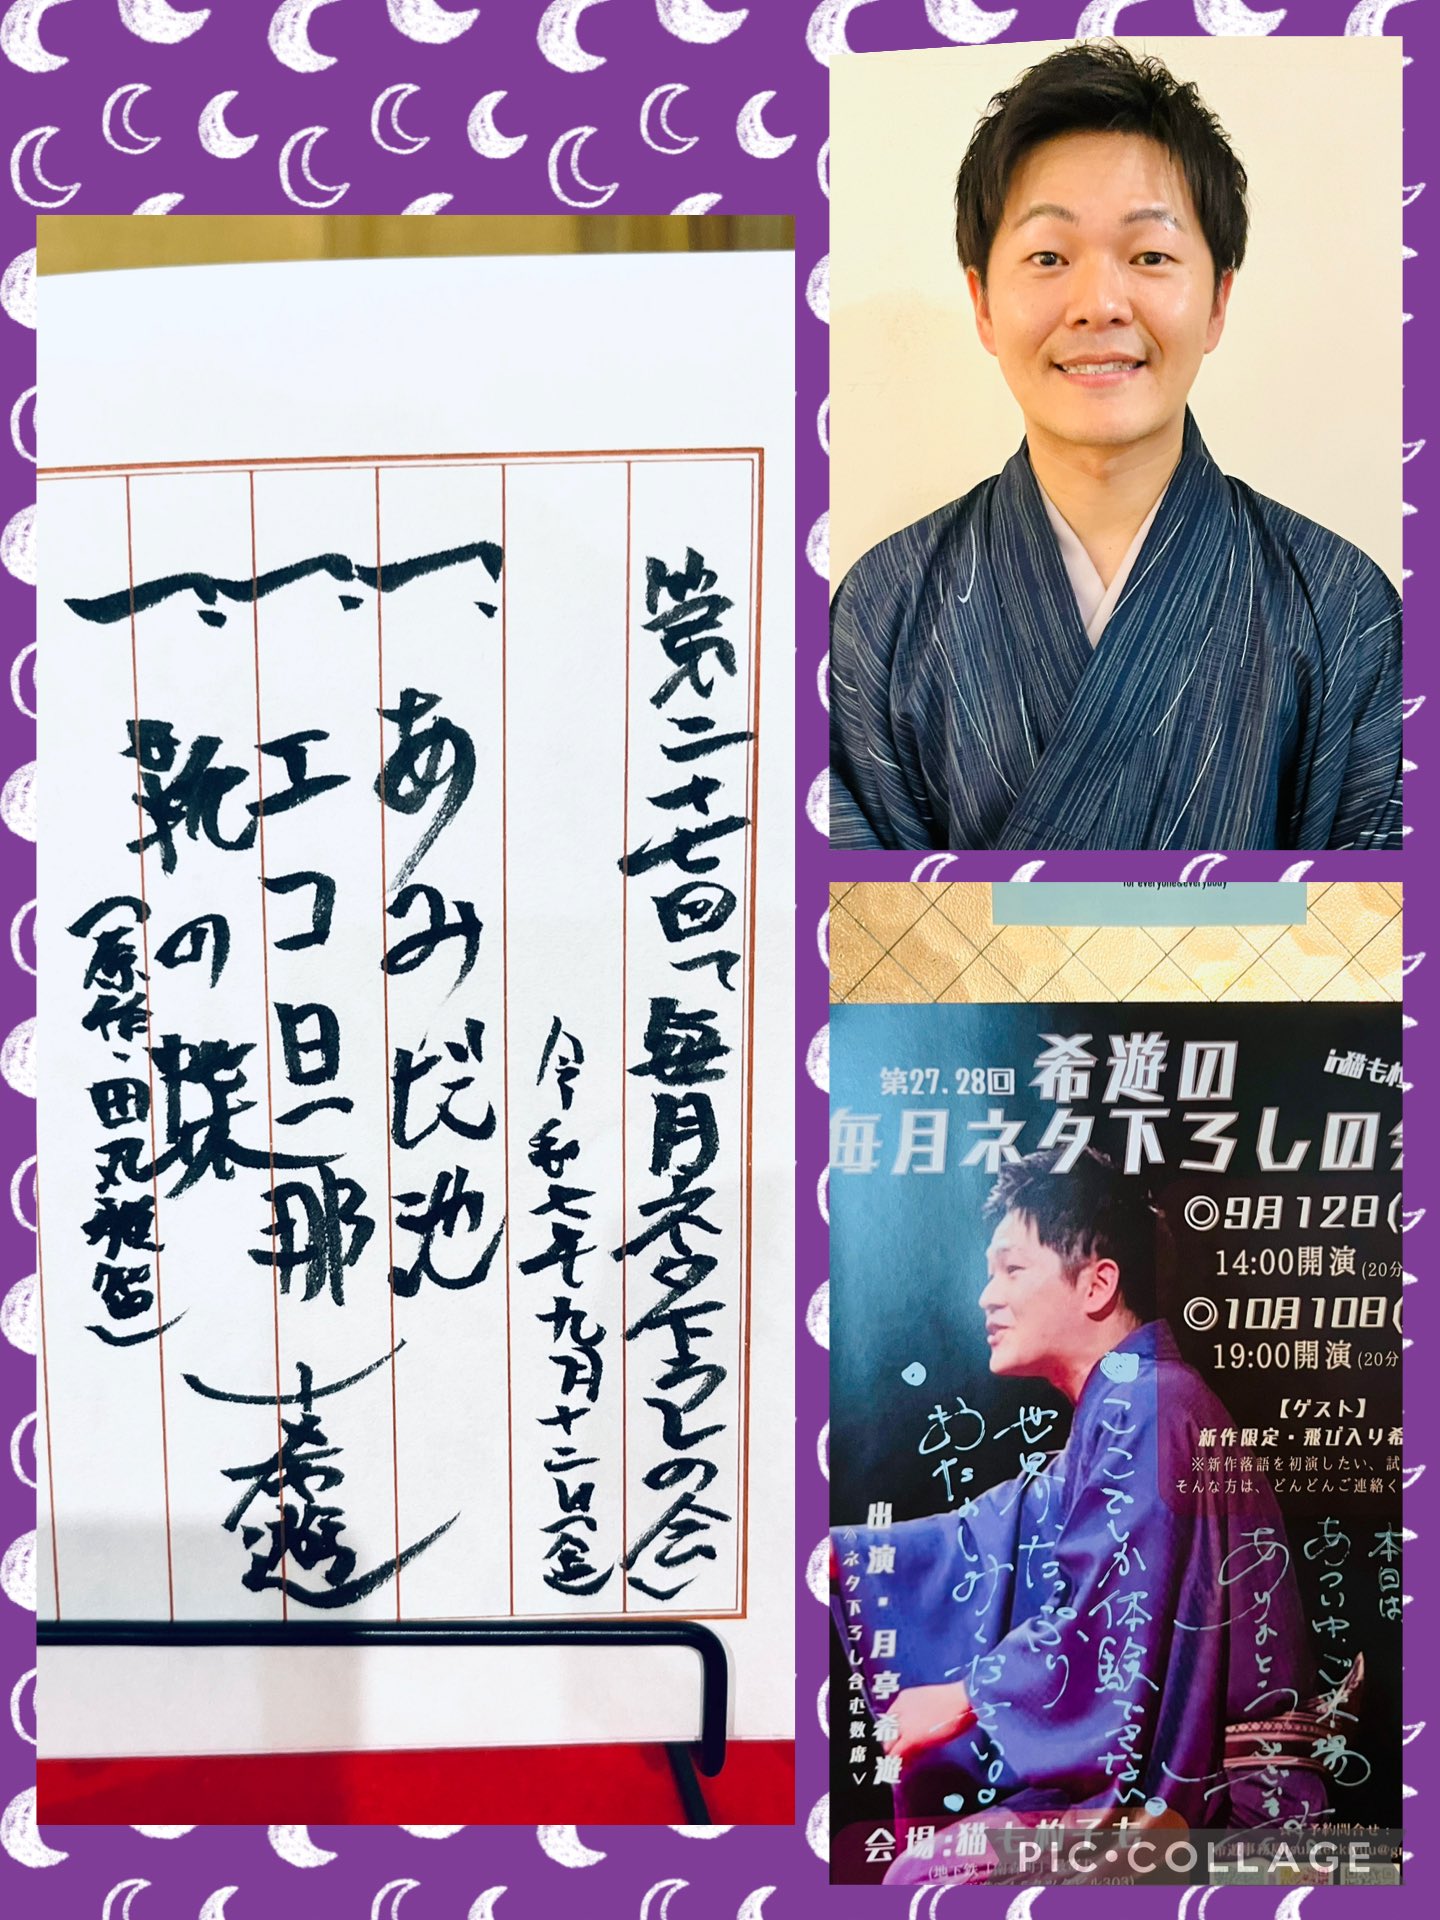 第二十七回 毎月ネタ下ろしの会
令和七年九月十二日(金)
一、あみだ池
一、エコ旦那
一、靴の
(原作・田丸雅智)
希遊
for everyone&everybody
in猫も杓
第27.28回 希遊の
毎月ネタ下ろしの会
◎9月12日(
14:00開演(20分
◎10月10日(
19:00開演(20分
【ゲスト】
新作限定・飛び入り希
※新作落語を初演したい、試
そんな方は、どんどんご連絡く
本日は
あつい中、ご来場
ありがとうございます
ここでしか体験できない
世界、たっぷり
おたのしみください。
出演・月亭希遊
<ネタ下ろし含む数席>
会場:猫も杓子も
予約問合せ:
PIC•COLLAGE